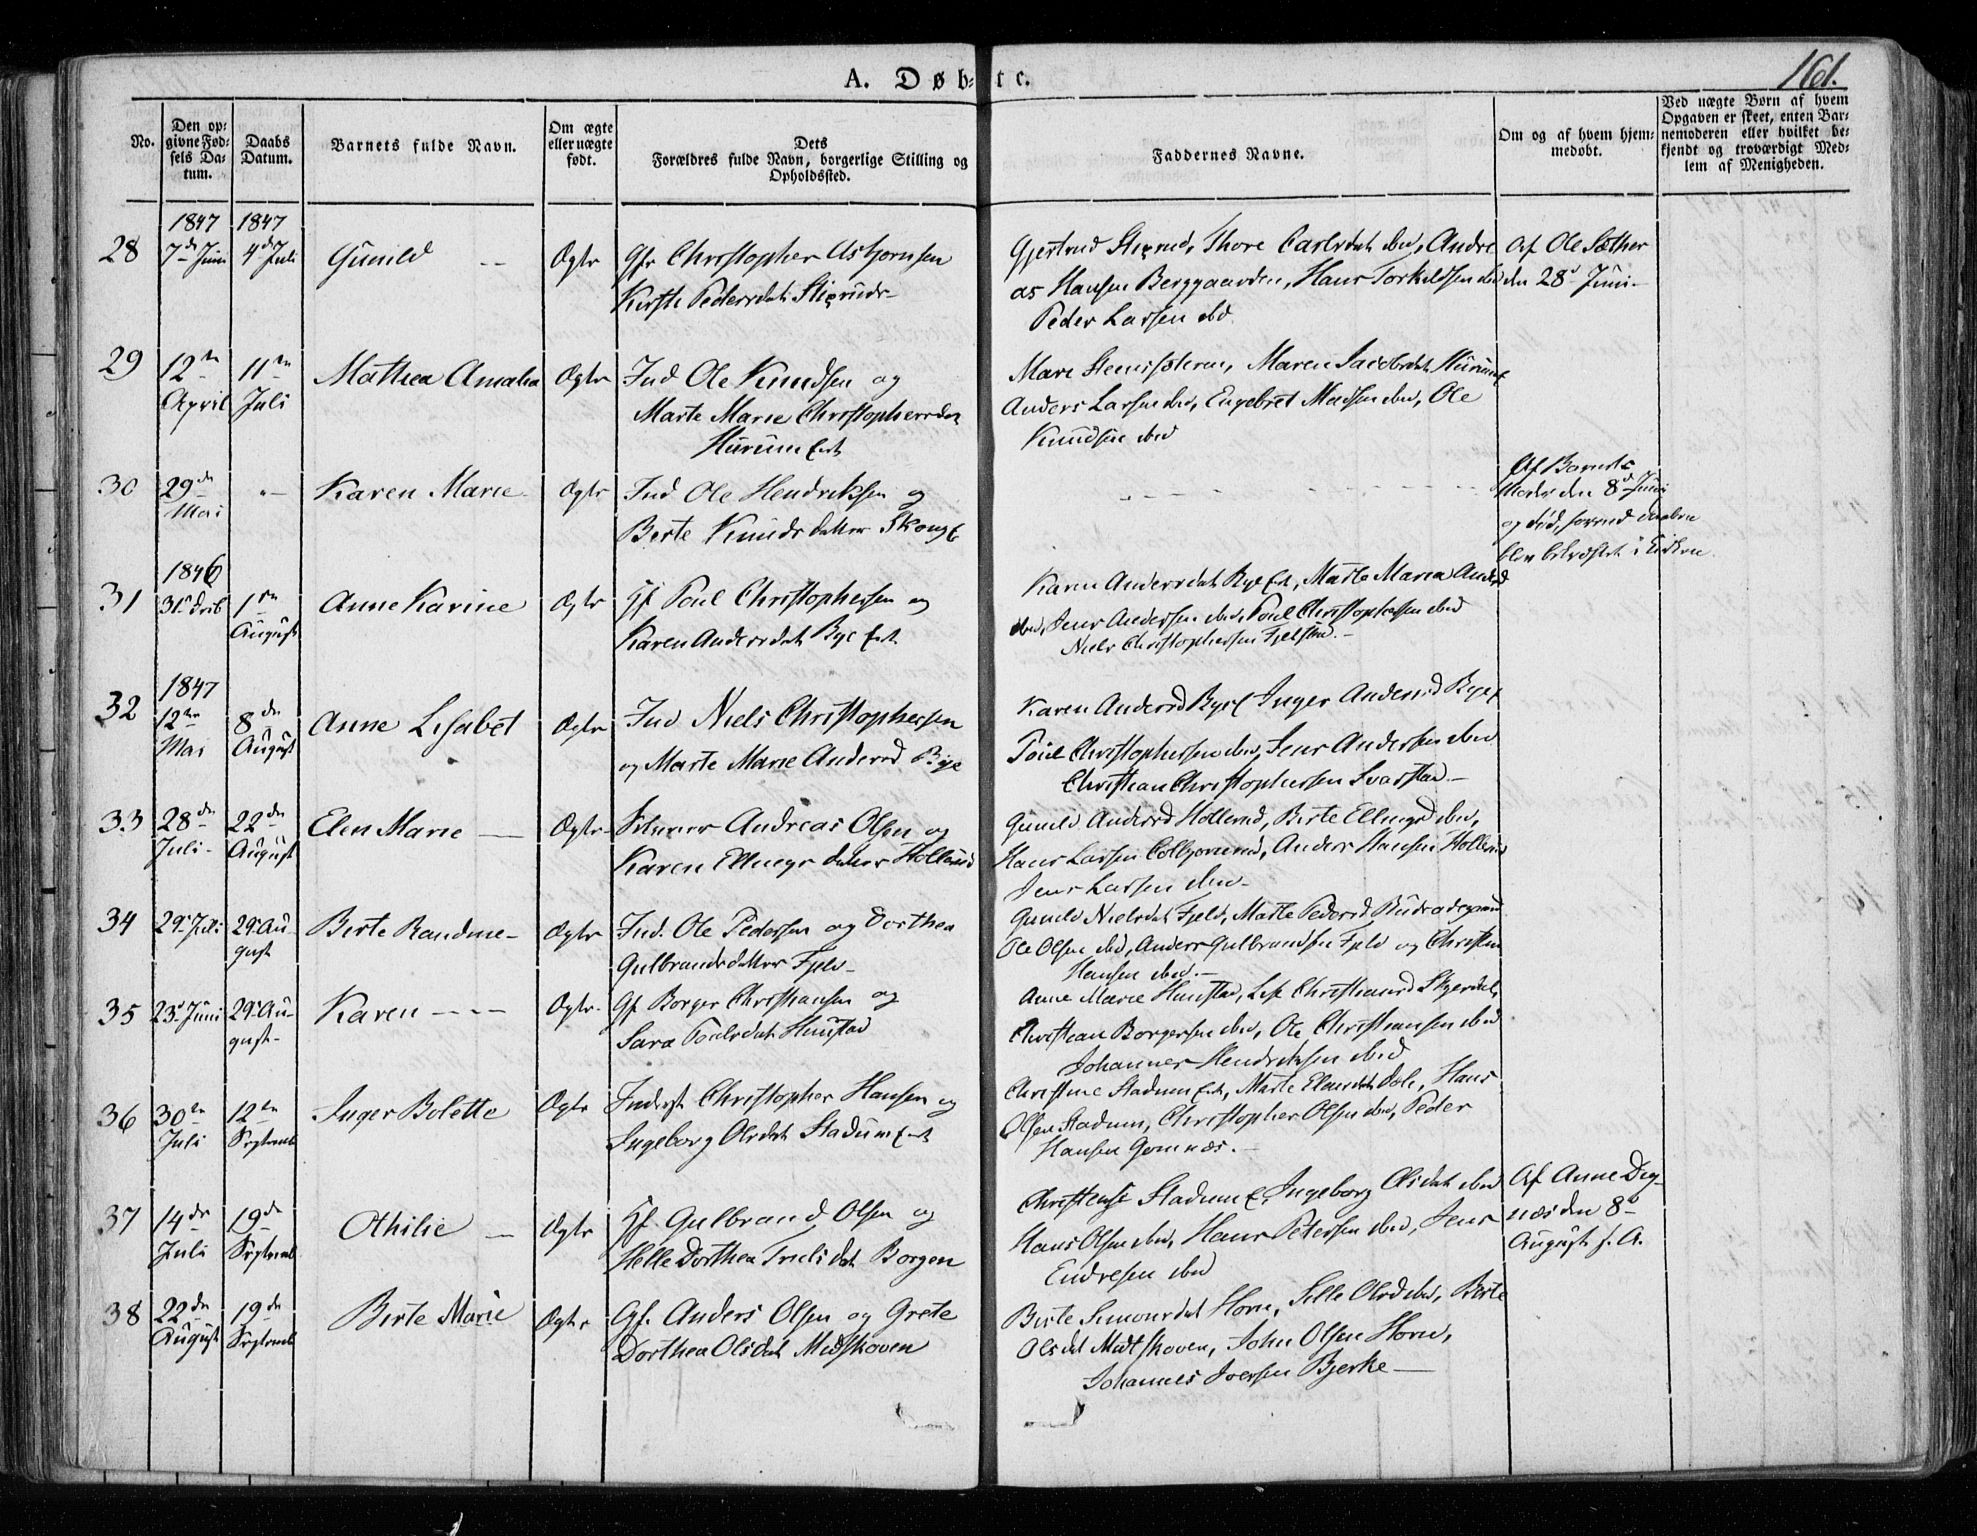 161.
A. Døbte.
No.
Den opgivne Fødsels Datum.
Daabs Datum.
Barnets fulde Navn.
Om ægte eller uægte født.
Dets Forældres fulde Navn, borgerlige Stilling og Opholdssted.
Faddernes Navne.
Om og af hvem hjemmedøbt.
Ved uægte Børn af hvem Opgaven er skeet, enten Barnemoderen eller hvilket bekjendt og troværdigt Medlem af Menigheden.
1847 1847
28 7de Juni 4de Juli Gunild Ægte Gfr Christopher Asbjørnsen
Kirsti Pedersdat
Thore Carlsdat ibd, Andre
as Hansen Berggaarden, Hans Torkildsen ibd
Peder Larsen ibd
Af Ole Sæther
den 28d Juni
29 12te April 11te Juli Mathea Amalia Ægte Ind Ole Knudsen og
Marte Marie Christophersdat
Hurum Eet
Maren Jacobsdat Hurum
Anders Larsen ibd, Engebret Madsen ibd, Ole
Knudsen ibd
30 29de Mai Karen Marie Ægte Ind Ole Hendriksen og
Berte Knudsdatter
Af Barnets
Moder den 8d Juni
og død, forend daaben
blev bekræftet i Kirken
1846
31 31d Decb 1ste August Anne Karine Ægte Gf Poul Christophersen og
Karen Andersdat Bye Eet
Karen Andersdat Bye Eet, Marte Maria Andersd
ibd, Jens Andersen ibd, Poul Christophersen ibd
Niels Christophersen Fjelstad
1847
32 12te Mai 8de August Anne Lisabet Ægte Ind Niels Christophersen
og Marte Marie Andersd Bye
Karen Andersd Bye Inger Andersd Bye
Poul Christophersen ibd, Jens Andersen ibd
Christian Christophersen Svarstad
33 28de Juli 22de August Elen Marie Ægte Andreas Olsen og
Karen Ellingsdatter Hollerud
Gunild Andersd Hollerud, Birte Ellingsd ibd,
Hans Larsen Colbjørnrud, Anders Hansen Hollerud
Jens Larsen ibd
34 29d Juli 29d August Berte Randine Ægte Ind. Ole Pedersen og Dorthea
Gulbrandsdatter Fjeld
Gunild Nielsdat Fjeld, Marte Pedersd
Ole Olsen ibd, Anders Gulbrandsen Fjeld og Christian
Hansen ibd.
35 23d Juni 29d August Karen Ægte Gf Borger Christiansen og
Sara Poulsdat Hunstad
Anne Marie Hunstad, Lise Christiansd Skjerdal,
Christian Borgersen ibd, Ole Christiansen ibd
Johannes Hendriksen ibd
36 30te Juli 12te Septemb Inger Bolette Ægte Inderst Christopher Hansen og
Ingeborg Olsdat Stadum Eet
Christine Stadum Eet, Marte Elensdat Dole, Hans
Olsen Stadum, Christopher Olsen ibd, Peder
Hansen Gomnæs.
37 14de Juli 19de Septemb Othilie Ægte Gf Gulbrand Olsen og
Helle Dorthea Truelsdat Borgen
Stadum E, Ingeborg Olsdat ibd
Hans Olsen ibd, Hans Petersen ibd, Jens
Endresen ibd
Af Anne Deg-
næs den 8d
August f. A.
38 22de August 19de Septemb Birte Marie Ægte Gf. Anders Olsen og Grete
Dorthea Olsdat Midtskoven
Birte Simonsdat Horn, Sille Olsd ibd, Birte
Olsdat Midtskoven, John Olsen Horn,
Johannes Iversen Bjerke